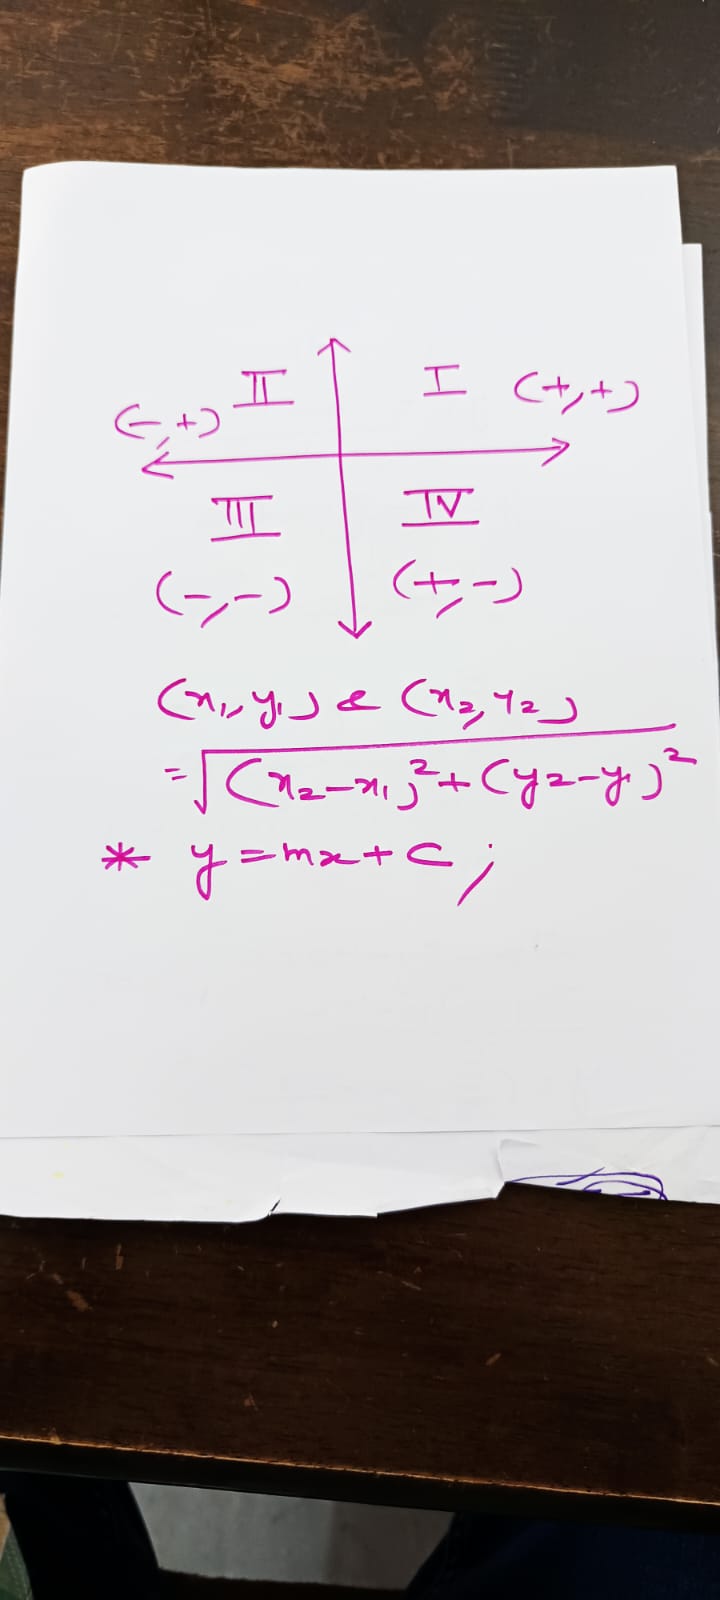 II I (+,+)
(-,+)
III IV
(-,-) (+,-)
(x₁,y₁) & (x₂,y₂)
=√(x₂-x₁)²+(y₂-y₁)²
* y=mx+c;